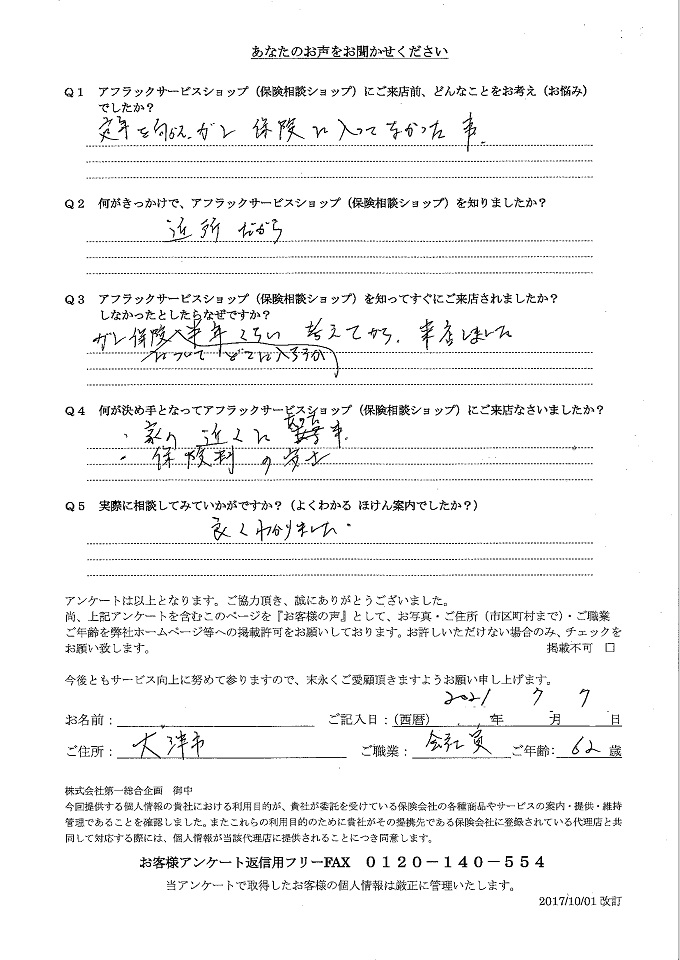 あなたのお声をお聞かせください
Q1 アフラックサービスショップ（保険相談ショップ）にご来店前、どんなことをお考え（お悩み）
でしたか？
定年を向え、ガン保険に入ってなかった事.
Q2 何がきっかけで、アフラックサービスショップ（保険相談ショップ）を知りましたか？
近所だから
Q3 アフラックサービスショップ（保険相談ショップ）を知ってすぐにご来店されましたか？
しなかったとしたらなぜですか？
ガン保険 半年くらい 考えてから、来店しました
について どこに入ろうか
Q4 何が決め手となってアフラックサービスショップ（保険相談ショップ）にご来店なさいましたか？
・家の近くに 事.
・保険料の
Q5 実際に相談してみていかがですか？（よくわかる ほけん案内でしたか？）
良くわかりました.
アンケートは以上となります。ご協力頂き、誠にありがとうございました。
尚、上記アンケートを含むこのページを『お客様の声』として、お写真・ご住所（市区町村まで）・ご職業
ご年齢を弊社ホームページ等への掲載許可をお願いしております。お許しいただけない場合のみ、チェックを
お願い致します。 掲載不可 □
今後ともサービス向上に努めて参りますので、末永くご愛顧頂きますようお願い申し上げます。
お名前： ご記入日：（西暦） 2021 年 7 月 7 日
ご住所： 大津市 ご職業： 会社員 ご年齢： 62 歳
株式会社第一総合企画 御中
今回提供する個人情報の貴社における利用目的が、貴社が委託を受けている保険会社の各種商品やサービスの案内・提供・維持
管理であることを確認しました。またこれらの利用目的のために貴社がその提携先である保険会社に登録されている代理店と共
同して対応する際には、個人情報が当該代理店に提供されることにつき同意します。
お客様アンケート返信用フリーFAX 0120－140－554
当アンケートで取得したお客様の個人情報は厳正に管理いたします。
2017/10/01 改訂